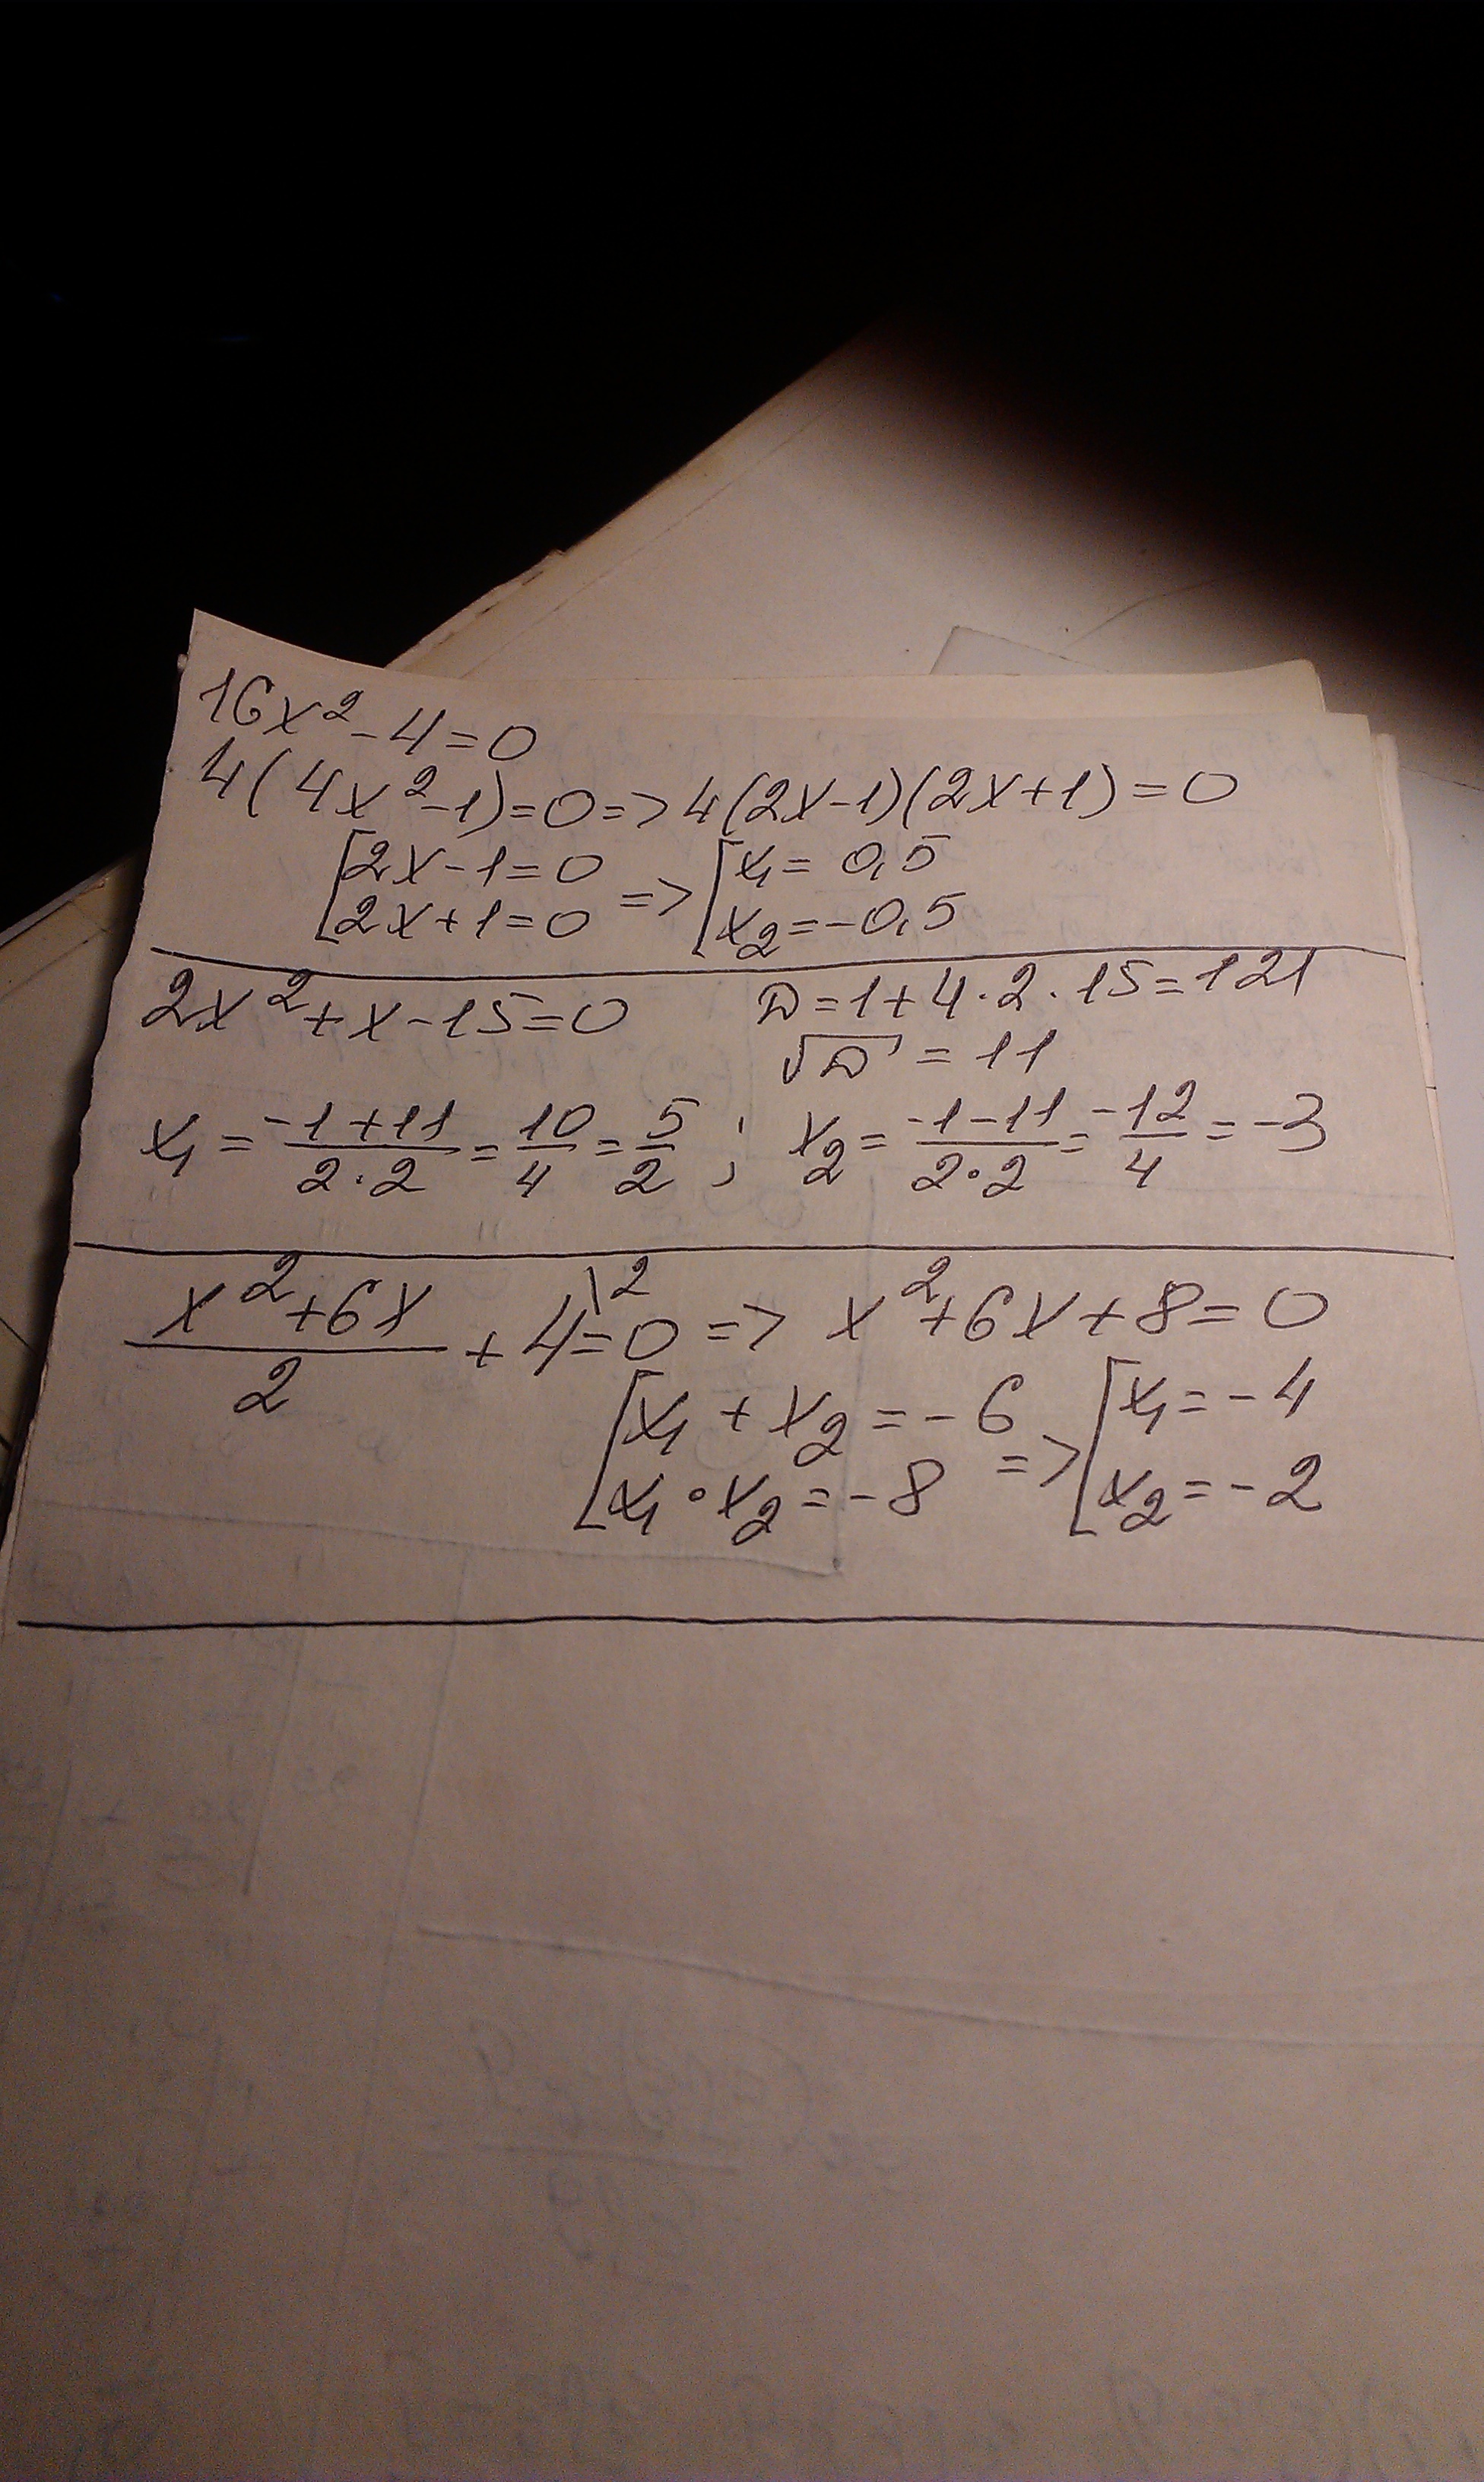 16x² - 4 = 0
4(4x² - 1) = 0 => 4(2x - 1)(2x + 1) = 0
[2x - 1 = 0 => [x₁ = 0,5
[2x + 1 = 0 [x₂ = -0,5
2x² + x - 15 = 0 D = 1 + 4 · 2 · 15 = 121
√D = 11
x₁ = (-1 + 11)/(2 · 2) = 10/4 = 5/2 ; x₂ = (-1 - 11)/(2 · 2) = -12/4 = -3
(x² + 6x)/2 + 4\² = 0 => x² + 6x + 8 = 0
[x₁ + x₂ = -6 => [x₁ = -4
[x₁ · x₂ = -8 [x₂ = -2